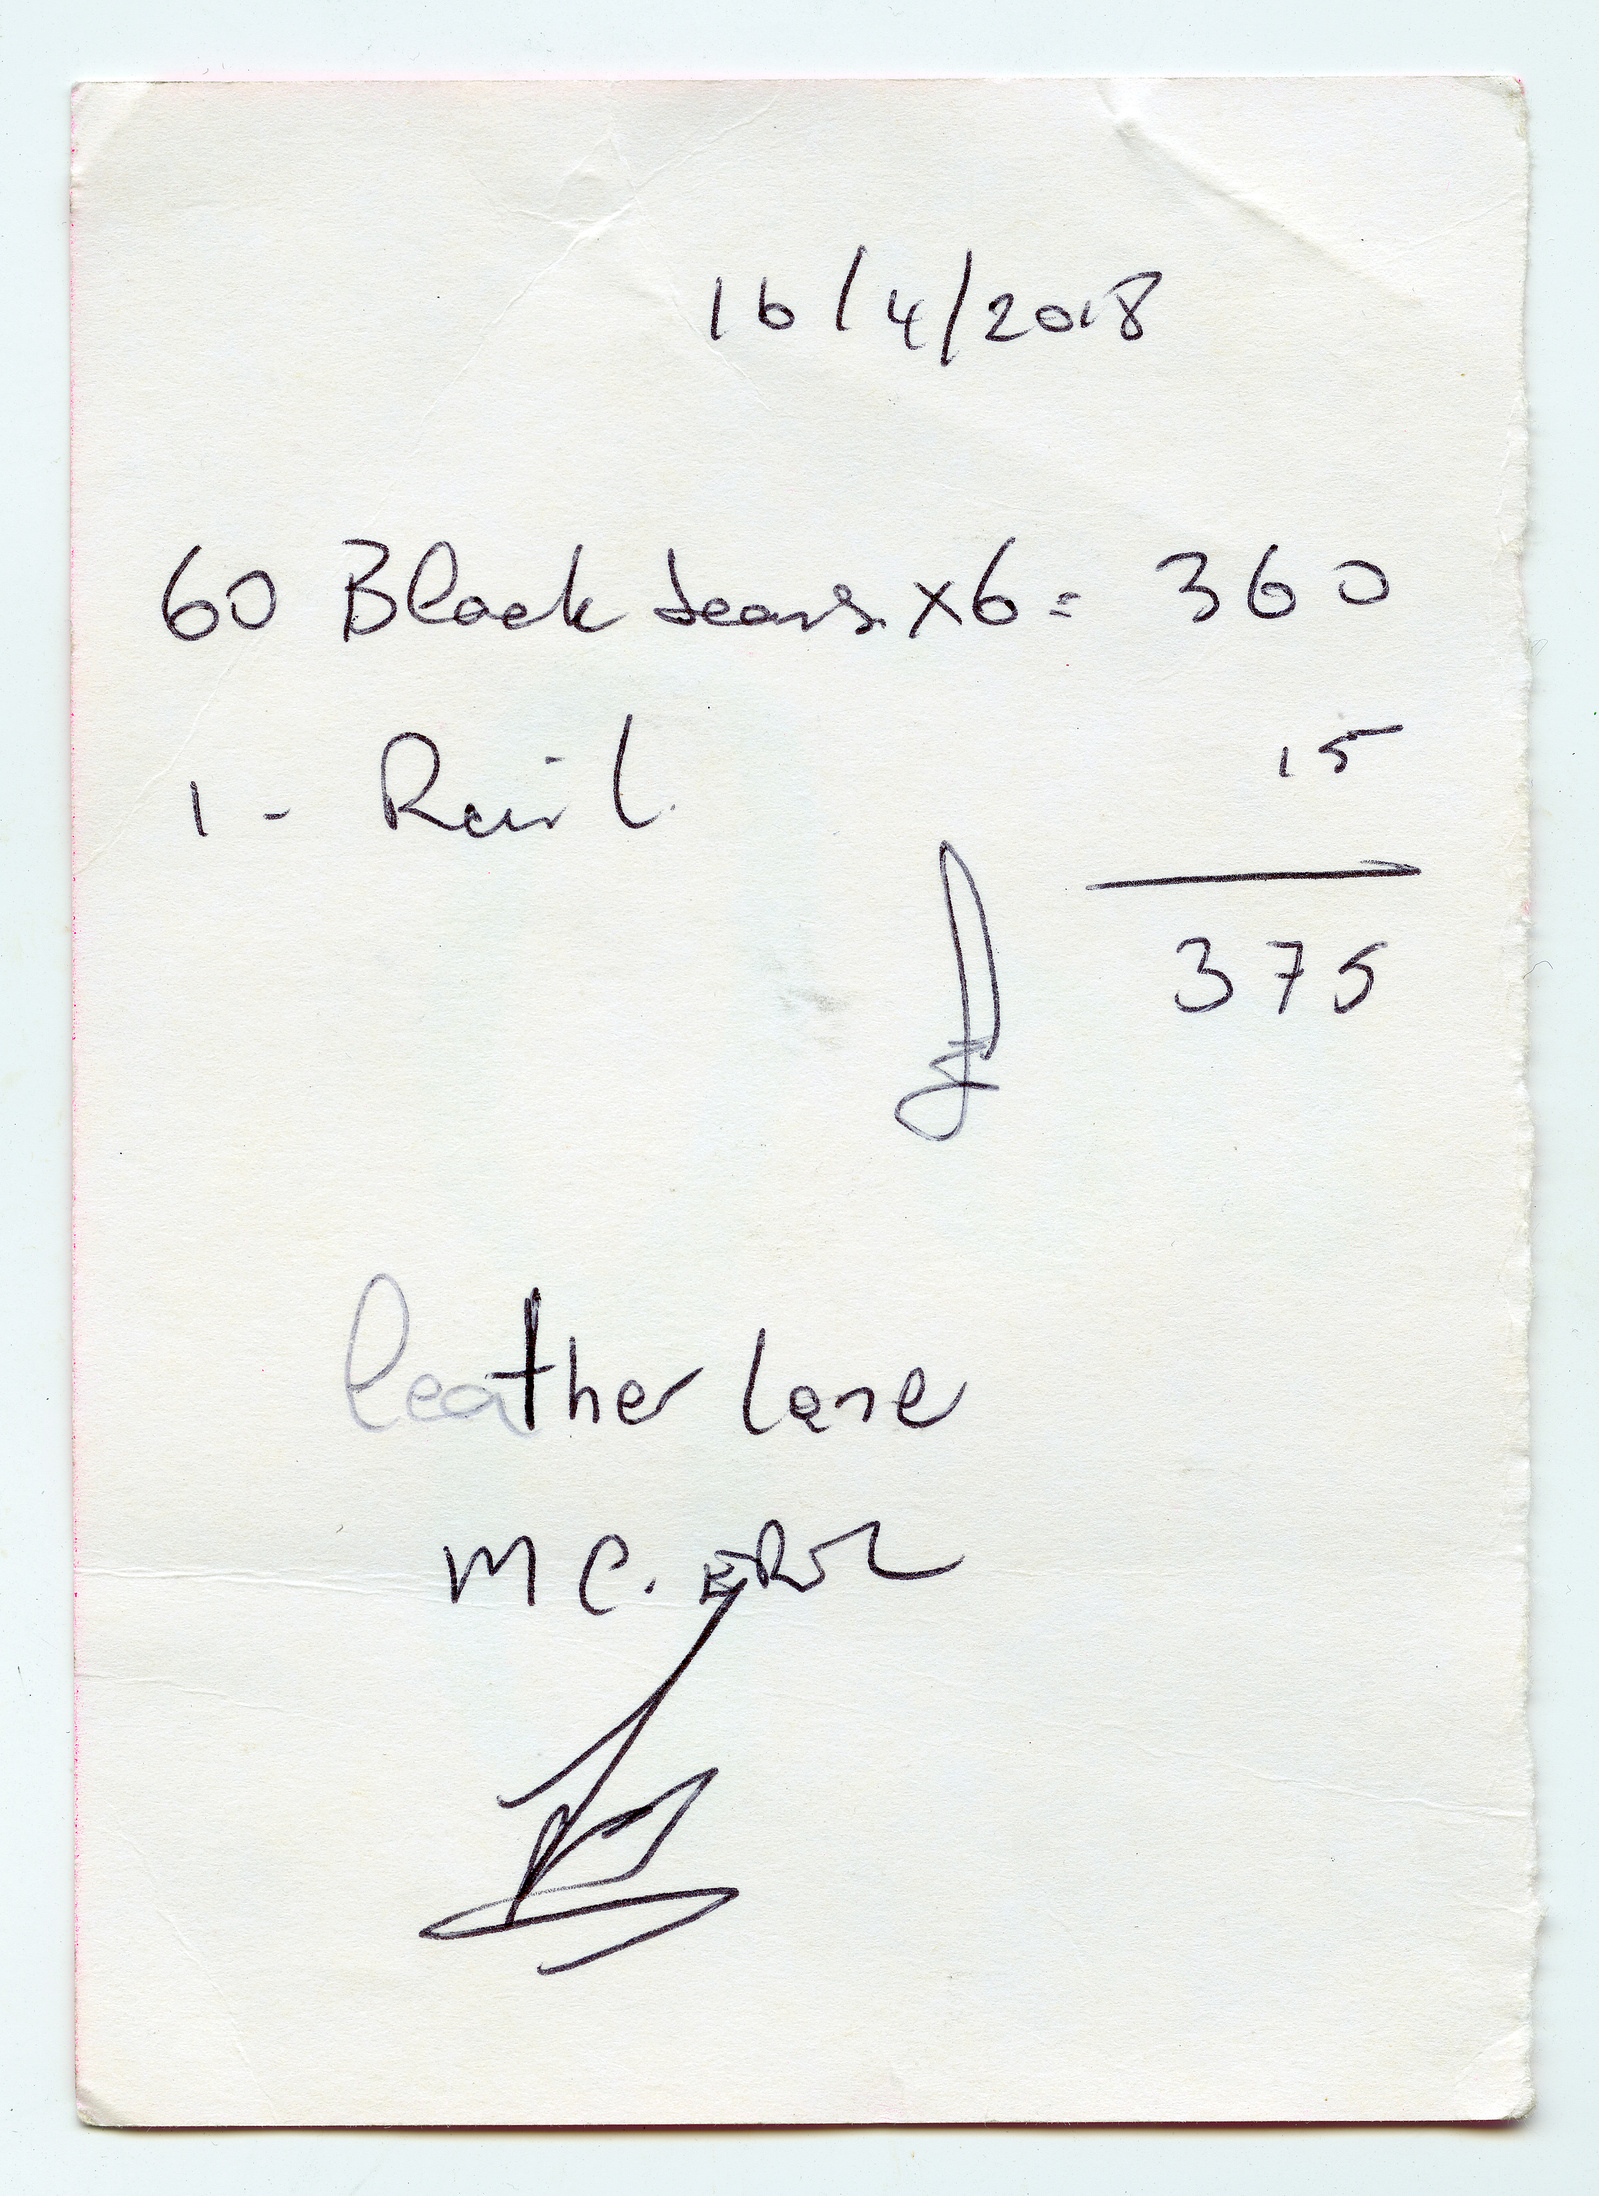 16/4/2018
60 Black Jeans x6 = 360
1 - Rail 15
£ 375
Leather Lane
M C. EROL